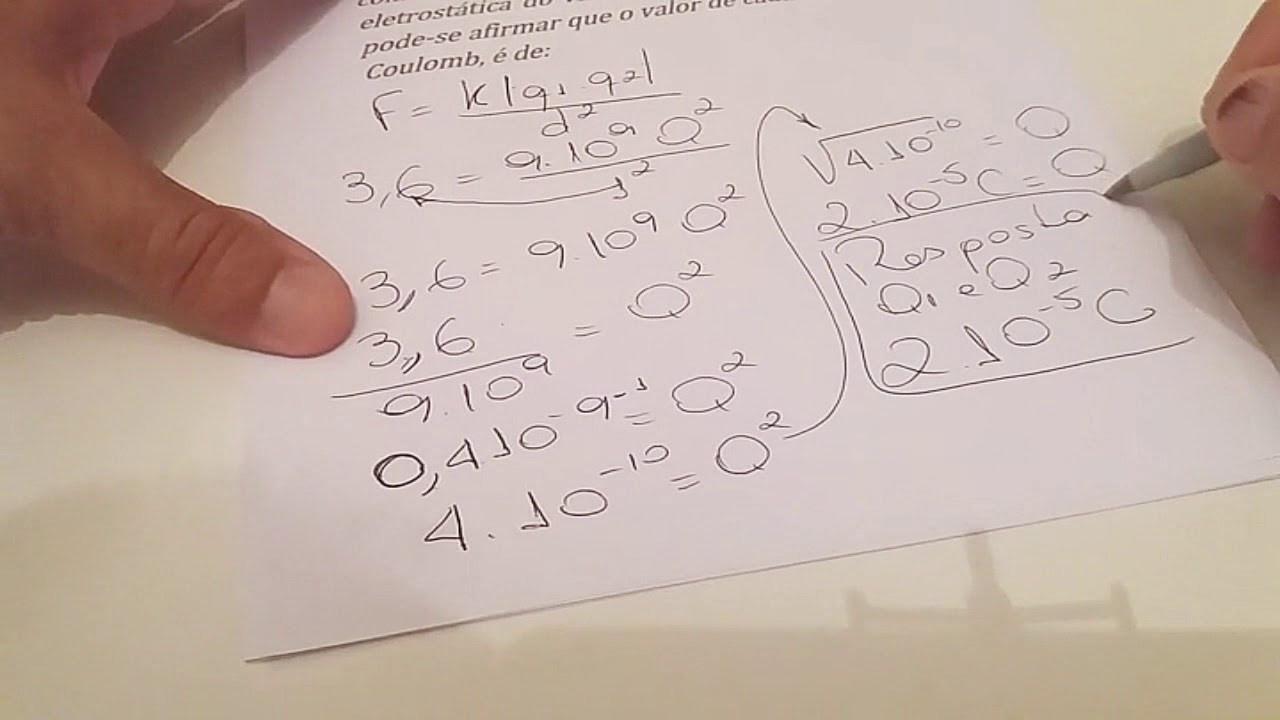 eletrostática do
pode-se afirmar que o valor de
Coulomb, é de:
F = K |q1 . q2|
d²
3,6 = 9.10⁹ Q²
1²
3,6 = 9.10⁹ Q²
3,6 = Q²
9.10⁹
0,4.10⁻⁹⁻¹ = Q²
4.10⁻¹⁰ = Q²
√4.10⁻¹⁰ = Q
2.10⁻⁵ C = Q
Resposta
Q1 e Q2
2.10⁻⁵ C